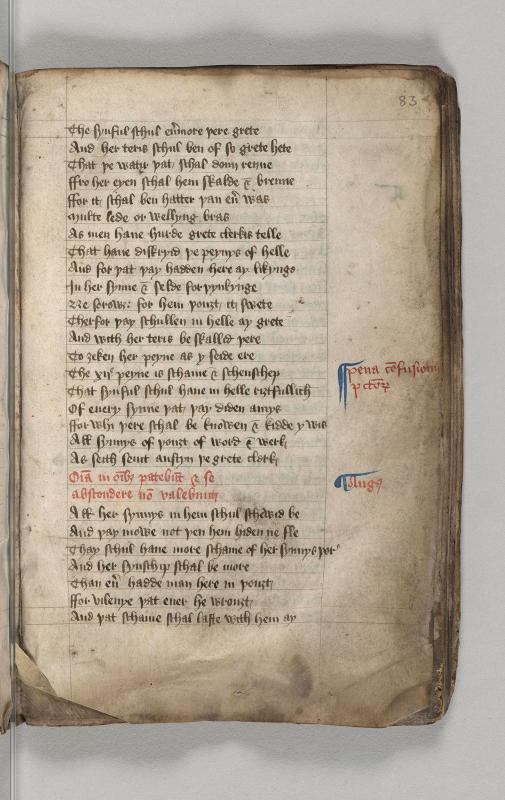 83
The synful schul eu̅more þere grete
And her teris schul ben of so grete hete
That þe watyr þat schal doun renne
ffro her eyen schal hem skalde & brenne
ffor it schal ben hatter þan eu̅ was
Multe lede or wellyng bras
As men haue hurde grete clerkis telle
That haue diskryid þe peynys of helle
And for þat þay hadden here ay likynge
In her synne & selde forþynkynge
Ne sorow: for hem þouȝt it swete
Therfor þay schullen in helle ay grete
And with her teris be skalled þere
To ȝeken her peyne as y seide ere
The xijͤ peyne is schame & schenschep
That synful schul haue in helle riȝtfullich
Of euery synne þat þay diden amys
ffor whi þere schal be knowen & kidde y wis
All synnys of þouȝt of word & werk
As seith seint austyn þe grete clerk
Oīa in oīb3 patebūt & se
abscondere nō valebunt
pena cōfusionis
p ctōꝝ
Augꝯ
All her synnys in hem schul schewid be
And þay mowe not þen hem hiden ne fle
Thay schul haue more schame of her synnys þorͤ
And her synschip schal be more
Than eu̅ hadde man here in þouȝt
ffor vilenye þat euer he wrouȝt
And þat schame schal laste with hem ay